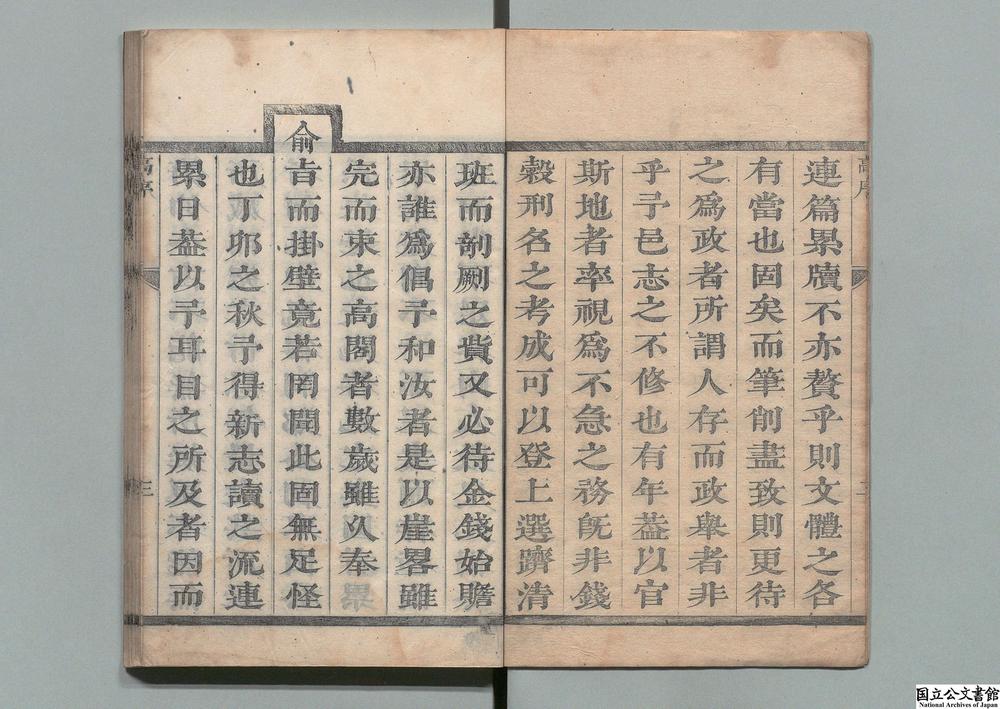 連篇累牘不亦贅乎則文體之各
有當也固矣而筆削盡致則更待
之爲政者所謂人存而政舉者非
乎予邑志之不修也有年葢以官
斯地者率視爲不急之務旣非錢
穀刑名之考成可以登上選躋淸
高序
二
班而剞劂之貲又必待金錢始贍
亦誰爲倡予和汝者是以崖畧雖
完而束之高閣者數歲雖乆奉
俞
旨而掛壁竟若罔聞此固無足怪
也丁卯之秋予得新志讀之流連
累日葢以予耳目之所及者因而
高序
三
国立公文書館
National Archives of Japan